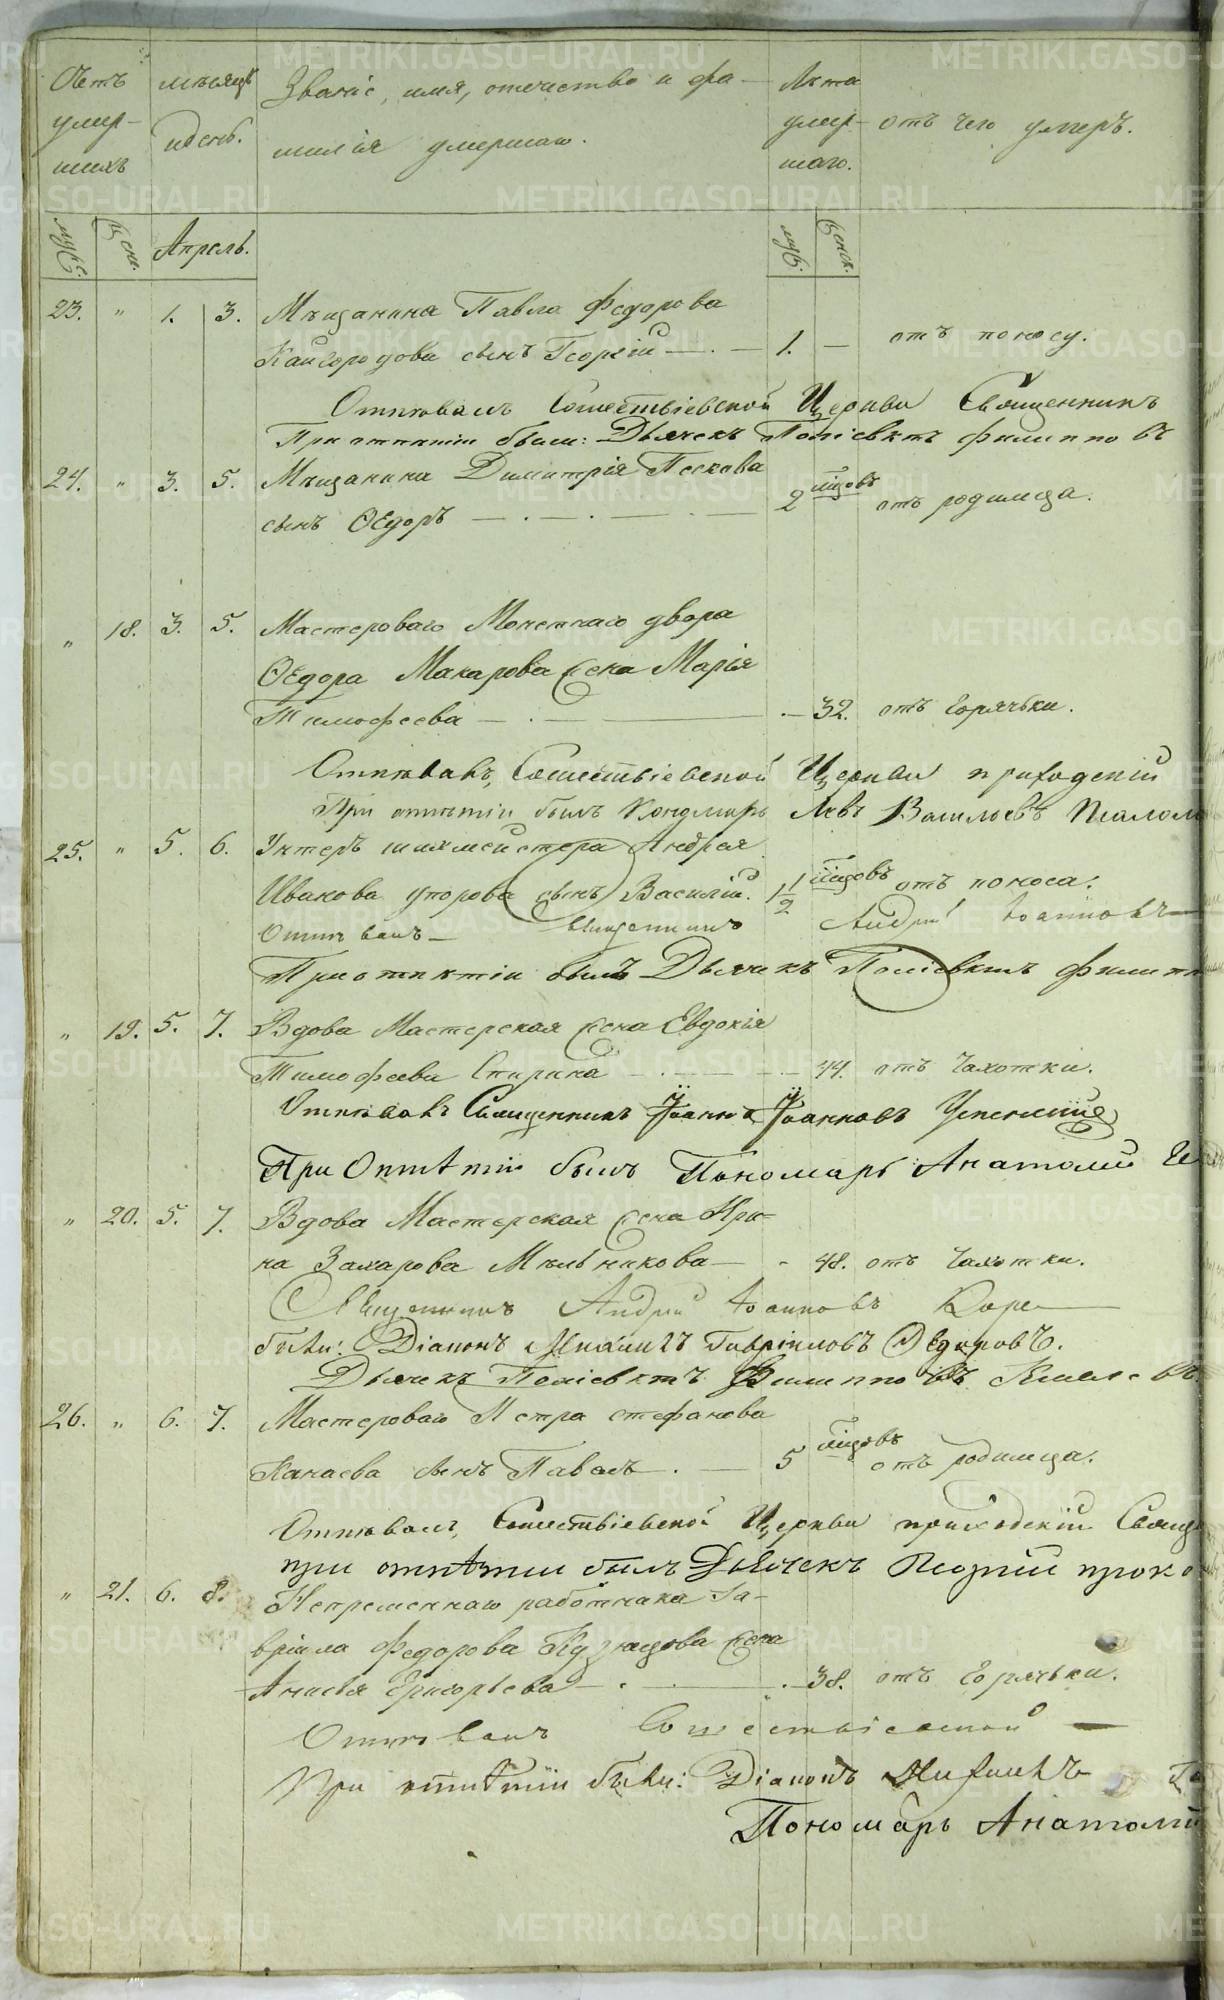 Счетъ умер- шихъ
мѣсяцъ и день.
Званіе, имя, отечество и фа-
милія умершаго.
Лѣта умер- шаго.
отъ чего умеръ.
муж. женс. Апрель. муж. женск.
23. " 1. 3. Мѣщанина Павла Федорова
Кайгородова сынъ Георгій — 1. — отъ поносу.
Отпѣвалъ Сошествіевской Церкви Священникъ
При отпѣтіи были: Дьячекъ Поліевктъ Филипповъ
24. " 3. 5. Мѣщанина Димитрія Пескова 2 мѣцовъ
сынъ Ѳедоръ — отъ родимца.
" 18. 3. 5. Мастероваго Монетнаго двора
Ѳедора Макарова жена Марія
Тимофеева — 32. отъ горячьки.
Отпѣвалъ, Сошествіевской Церкви приходскій
При отпѣтіи былъ Пономарь Левъ Васильевъ
25. " 5. 6. Унтеръ шихмейстера Андрея
Иванова сынъ Василій. 1 1/2 мѣцовъ отъ поноса.
Отпѣвалъ — Священникъ Андрей Іоанновъ —
При отпѣтіи былъ Дьячекъ Поліевктъ
" 19. 5. 7. Вдова Мастерская жена Евдокія
Тимофеева Спирина — 44. отъ чахотки.
Отпѣвалъ Священникъ Іоаннъ Іоанновъ Успенскій
При Отпѣтіи былъ Пономарь Анатолій
" 20. 5. 7. Вдова Мастерская жена Ири-
на Захарова Мѣльникова — 48. отъ чахотки.
Священникъ Андрей Іоанновъ
были: Діаконъ Михаилъ Гавріиловъ Ѳедоровъ.
Дьячекъ Поліевктъ Филипповъ
26. " 6. 7. Мастероваго Петра Стефанова
Канаева сынъ Павелъ. — 5 мѣцовъ отъ родимца.
Отпѣвалъ, Сошествіевской Церкви приходскій
при отпѣтіи былъ Дьячекъ
" 21. 6. 8. Непременнаго работника Га-
вріила Федорова Кузнецова жена
Анисья Григорьева — 38. отъ горячьки.
Отпѣвалъ Сошествіевской —
При отпѣтіи были: Діаконъ Михаилъ
Пономарь Анатолій
METRIKI.GASO-URAL.RU